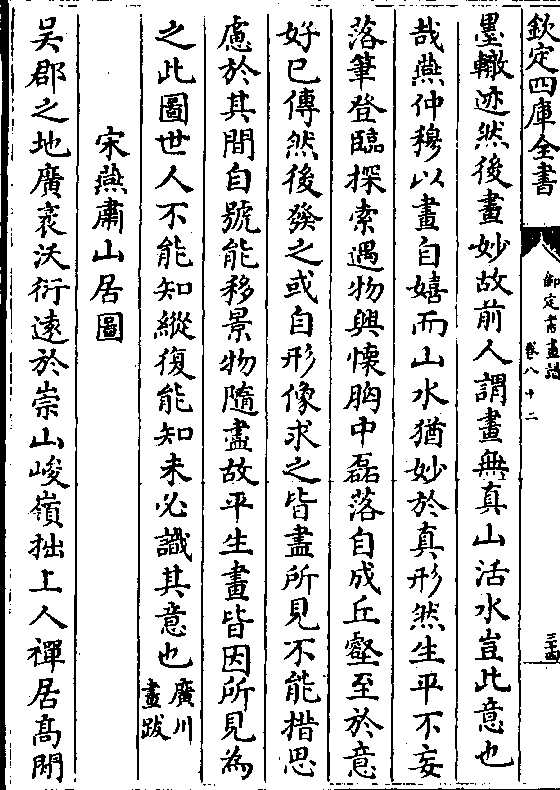 欽定四庫全書
御定書畫譜
卷八十二
三十四
墨轍迹然後畫妙故前人謂畫無真山活水豈此意也
哉燕仲穆以畫自嬉而山水猶妙於真形然生平不妄
落筆登臨探索遇物興懷胸中磊落自成丘壑至於意
好已傳然後發之或自形像求之皆盡所見不能措思
慮於其間自號能移景物隨盡故平生畫皆因所見為
之此圖世人不能知縱復能知未必識其意也廣川畫跋
宋燕肅山居圖
吴郡之地廣袤沃衍逺於崇山峻嶺拙上人禪居髙閒